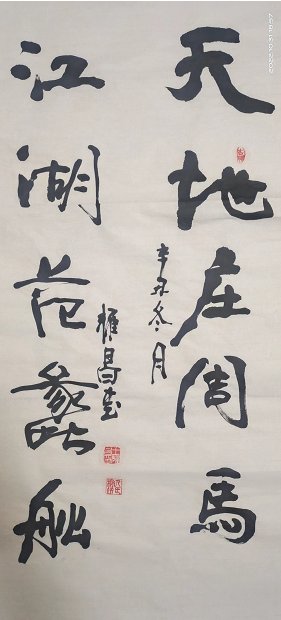 天地庄周馬
江湖范蠡船
辛丑冬月